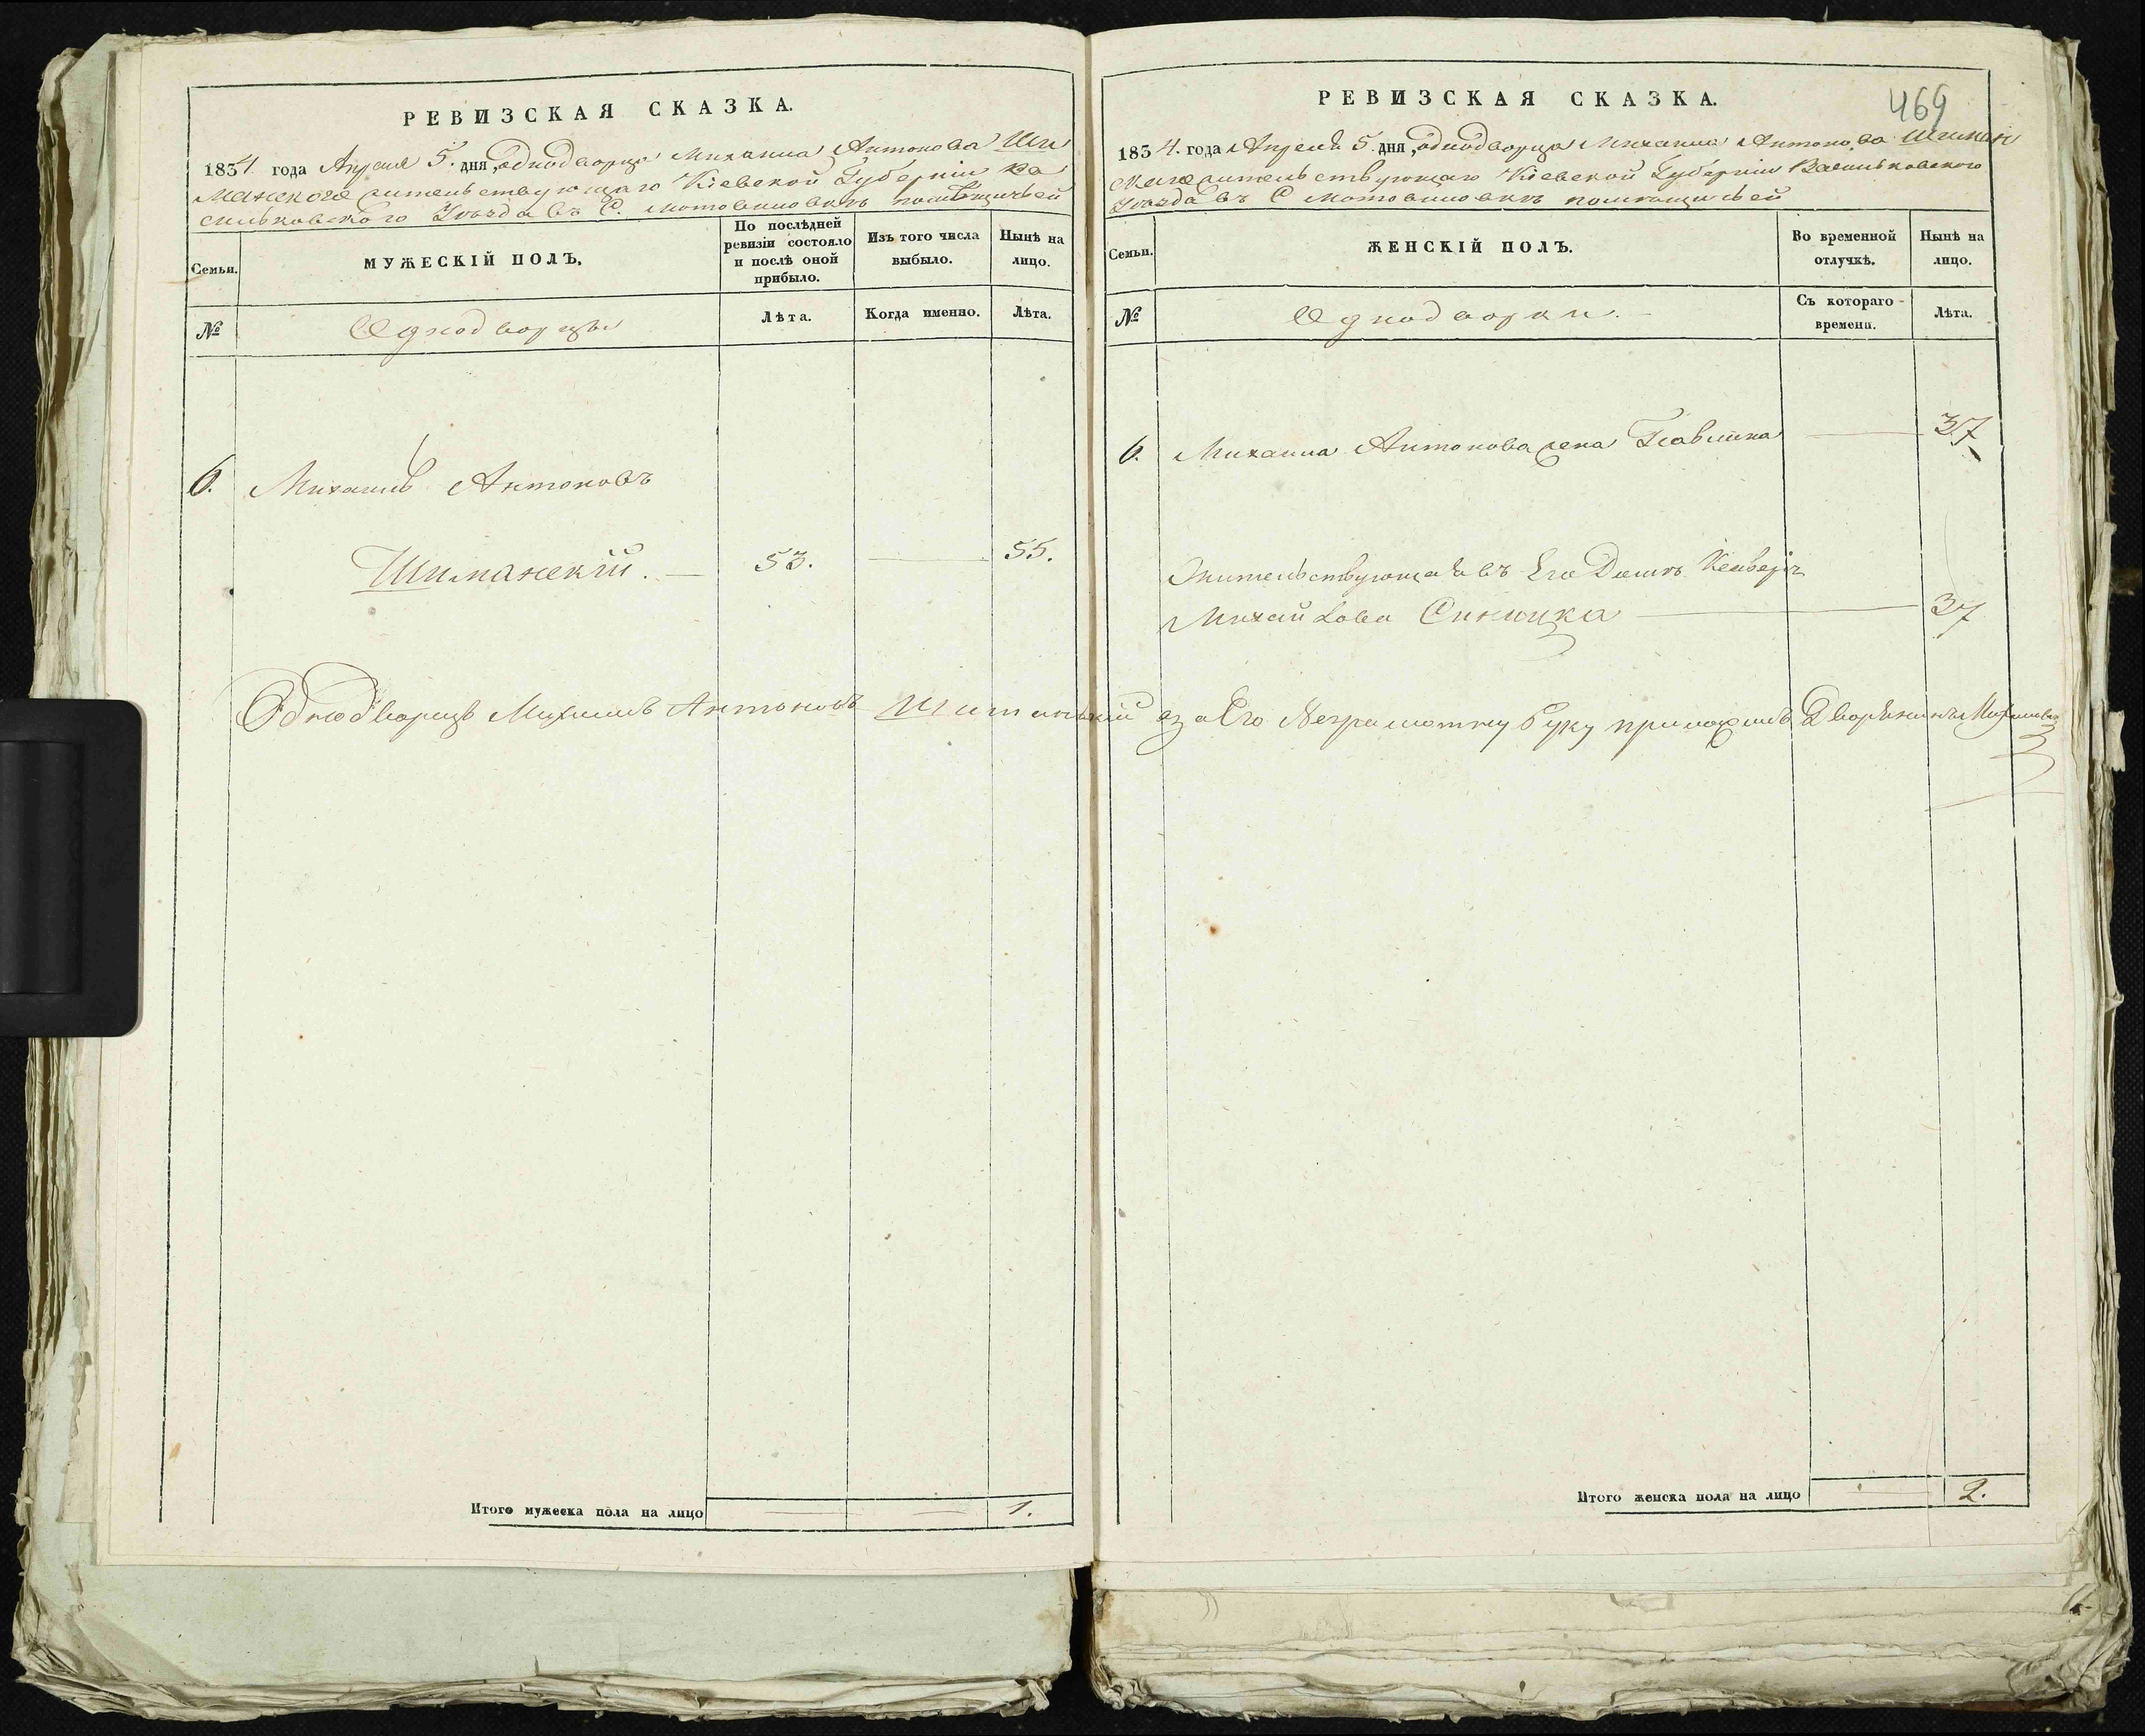 РЕВИЗСКАЯ СКАЗКА.
1834. года Апреля 5. дня, однодворца Михаила Антонова Ши
манского жительствующаго Кіевской Губерніи Ва
сильковского Уѣзда въ С. Мотовиловкѣ помѣщичьей
Семьи.
МУЖЕСКІЙ ПОЛЪ.
По послѣдней ревизіи состояло и послѣ оной прибыло.
Изъ того числа выбыло.
Нынѣ на лицо.
№
Однодворцы
Лѣта.
Когда именно.
Лѣта.
6. Михаилъ Антоновъ
Шиманскій. — 53. — 55.
Итого мужеска пола на лицо — — 1.
469
РЕВИЗСКАЯ СКАЗКА.
1834. года Апреля 5. дня, однодворца Михаила Антонова Шиман
ского жительствующаго Кіевской Губерніи Васильковского
Уѣзда въ С Мотовиловкѣ помѣщичьей
Семьи.
ЖЕНСКІЙ ПОЛЪ.
Во временной отлучкѣ.
Нынѣ на лицо.
№
Однодворки. —
Съ котораго времени.
Лѣта.
6. Михаила Антонова жена — 37
Жительствующая въ Его Домѣ
Михайлова — 37
Однодворецъ Михаилъ Антоновъ Шиманский а за Его Неграмотну руку приложилъ Дворянинъ
Итого женска пола на лицо — 2.